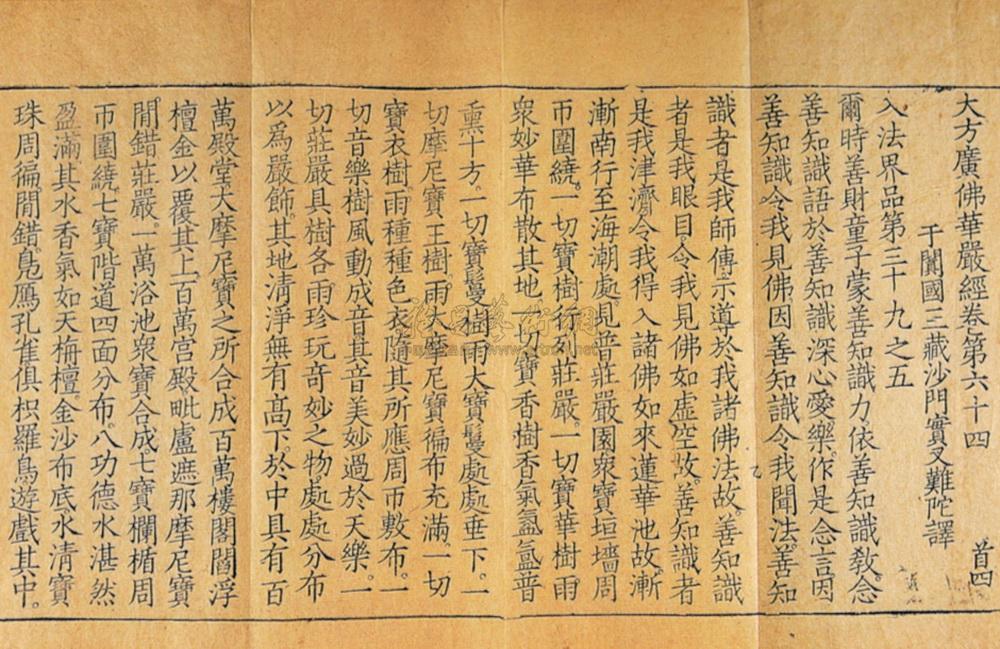 大方廣佛華嚴經卷第六十四
首四
于闐國三藏沙門實叉難陀譯
入法界品第三十九之五
爾時善財童子蒙善知識力依善知識教念
善知識語於善知識深心愛樂作是念言因
善知識令我見佛因善知識令我聞法善知
識者是我師傅示導於我諸佛法故善知識
者是我眼目令我見佛如虛空故善知識者
是我津濟令我得入諸佛如來蓮華池故漸
漸南行至海潮處見普莊嚴園眾寶垣墻周
帀圍繞一切寶樹行列莊嚴一切寶華樹雨
眾妙華布散其地一切寶香樹香氣氤氳普
熏十方一切寶鬘樹雨大寶鬘處處垂下一
切摩尼寶王樹雨大摩尼寶徧布充滿一切
寶衣樹雨種種色衣隨其所應周帀敷布一
切音樂樹風動成音其音美妙過於天樂一
切莊嚴具樹各雨珍玩奇妙之物處處分布
以為嚴飾其地清淨無有高下於中具有百
萬殿堂大摩尼寶之所合成百萬樓閣閻浮
檀金以覆其上百萬宮殿毗盧遮那摩尼寶
閒錯莊嚴一萬浴池眾寶合成七寶欄楯周
帀圍繞七寶階道四面分布八功德水湛然
盈滿其水香氣如天栴檀金沙布底水清寶
珠周徧閒錯鳧鴈孔雀俱枳羅鳥遊戲其中